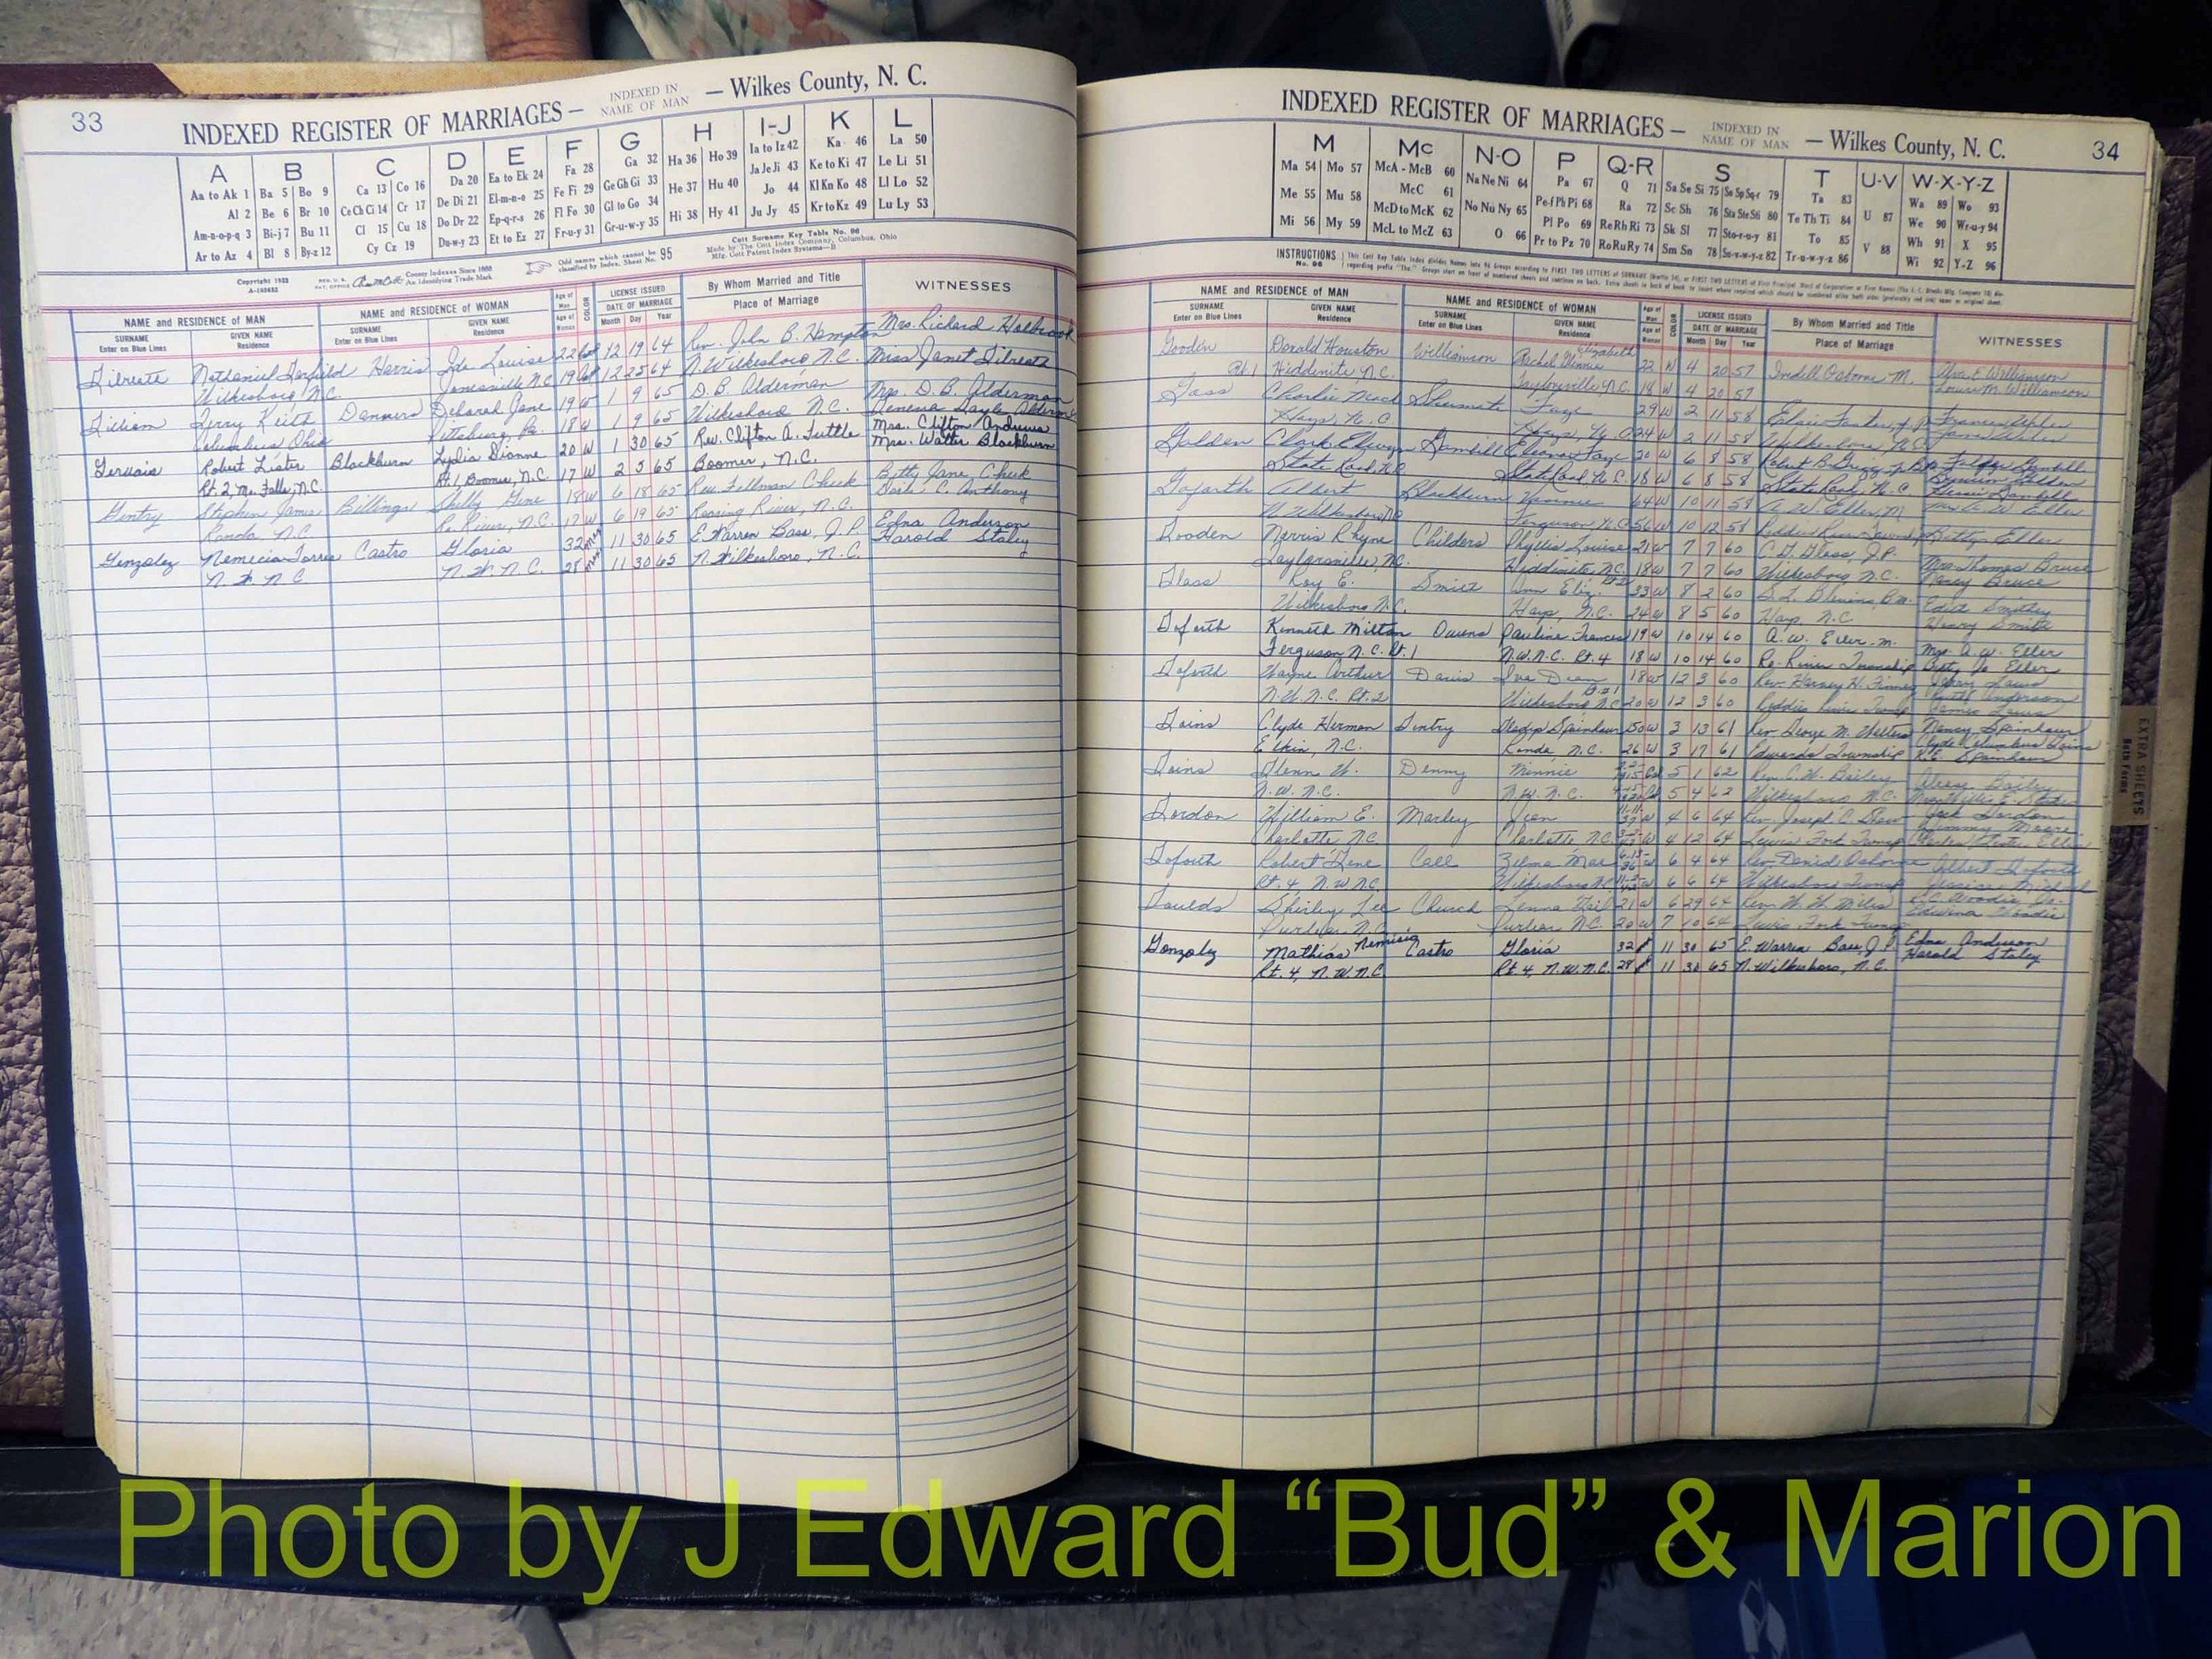 33
INDEXED REGISTER OF MARRIAGES — INDEXED IN NAME OF MAN — Wilkes County, N. C.
A B C D E F G H I-J K L
Aa to Ak 1 Ba 5 Bo 9 Ca 13 Co 16 Da 20 Ea to Ek 24 Fa 28 Ga 32 Ha 36 Ho 39 Ia to Iz 42 Ka 46 La 50
Al 2 Be 6 Br 10 Ce Ch Ci 14 Cr 17 De Di 21 El-m-n-o 25 Fe Fi 29 Ge Gh Gi 33 He 37 Hu 40 Ja Je Ji 43 Ke to Ki 47 Le Li 51
Am-n-o-p-q 3 Bi-j 7 Bu 11 Cl 15 Cu 18 Do Dr 22 Ep-q-r-s 26 Fl Fo 30 Gl to Go 34 Hi 38 Hy 41 Jo 44 Kl Kn Ko 48 Ll Lo 52
Ar to Az 4 Bl 8 By-z 12 Cy Cz 19 Du-w-y 23 Et to Ez 27 Fr-u-y 31 Gr-u-w-y 35 Ju Jy 45 Kr to Kz 49 Lu Ly 53
Cott Surname Key Table No. 96
Made by The Cott Index Company, Columbus, Ohio
Mfg. Cott Patent Index Systems—B
Odd names which cannot be classified by Index, Sheet No. 95
County Indexes Since 1888
An Identifying Trade Mark
NAME and RESIDENCE OF MAN NAME and RESIDENCE OF WOMAN Age of Man COLOR LICENSE ISSUED By Whom Married and Title WITNESSES
SURNAME GIVEN NAME SURNAME GIVEN NAME Age of Woman DATE OF MARRIAGE Place of Marriage
Enter on Blue Lines Residence Enter on Blue Lines Residence Month Day Year
Gilreath Nathaniel Garfield Harris Ida Louise 22 Col 12 19 64 Rev. John B. Hampton Mrs. Richard Holbrook
Wilkesboro N.C. Jonesville N.C. 19 Col 12 25 64 N. Wilkesboro N.C. Miss Janet Gilreath
Gilliam Jerry Keith Danners Deborah Jane 19 W 1 9 65 D.B. Alderman Mrs. D.B. Alderman
Columbus Ohio Pittsburg, Pa. 18 W 1 9 65 Wilkesboro N.C.
Gervais Robert Lister Blackburn Lydia Dianne 20 W 1 30 65 Rev. Clifton A. Tuttle Mrs. Clifton Andrews
Rt. 2, Mo. Falls, N.C. Rt. 1, Boomer, N.C. 17 W 2 3 65 Boomer, N.C. Mrs. Walter Blackburn
Gentry Stephen James Billings Shelly Gene 18 W 6 18 65 Rev. Tellman Cheek Betty Jane Cheek
Ronda N.C. Ro. River, N.C. 17 W 6 19 65 Roaring River, N.C. Gaile C. Anthony
Gonzalez Nemecia Torres Castro Gloria 32 Mex 11 30 65 E. Warren Bass, J.P. Edna Anderson
N.W. N.C. N.W. N.C. 28 Mex 11 30 65 N. Wilkesboro, N.C. Harold Staley
34
INDEXED REGISTER OF MARRIAGES — INDEXED IN NAME OF MAN — Wilkes County, N. C.
M Mc N-O P Q-R S T U-V W-X-Y-Z
Ma 54 Mo 57 McA - McB 60 Na Ne Ni 64 Pa 67 Q 71 Sa Se Si 75 So Sp Sq-r 79 Ta 83 U 87 Wa 89 Wo 93
Me 55 Mu 58 McC 61 No Nu Ny 65 Pe-f Ph Pi 68 Ra 72 Sc Sh 76 Sta Ste Sti 80 Te Th Ti 84 V 88 We 90 Wr-u-y 94
Mi 56 My 59 McD to McK 62 O 66 Pl Po 69 Re Rh Ri 73 Sk Sl 77 Sto-r-u-y 81 To 85 Wh 91 X 95
McL to McZ 63 Pr to Pz 70 Ro Ru Ry 74 Sm Sn 78 Su-v-w-y-z 82 Tr-u-w-y-z 86 Wi 92 Y-Z 96
INSTRUCTIONS
No. 96
NAME and RESIDENCE OF MAN NAME and RESIDENCE OF WOMAN Age of Man COLOR LICENSE ISSUED By Whom Married and Title WITNESSES
SURNAME GIVEN NAME SURNAME GIVEN NAME Age of Woman DATE OF MARRIAGE Place of Marriage
Enter on Blue Lines Residence Enter on Blue Lines Residence Month Day Year
Gooden Donald Houston Williamson Rachel Elizabeth 22 W 4 20 57 Indell Osborne M. Alva E. Williamson
Rt. 1 Hiddenite, N.C. Taylorsville, N.C. 18 W 4 20 57 Louise M. Williamson
Goss Charlie Mack Shumate Faye 29 W 2 11 58
Hays, N.C. Hays, N.C. 24 W 2 11 58 Wilkesboro, N.C.
Golden Clark Edwyn Gambill Eleanor Faye 20 W 6 8 58
State Road, N.C. State Road N.C. 18 W 6 8 58 State Road, N.C.
Goforth Albert Blackburn 64 W 10 11 58 A.W. Eller, M. Mrs. A.W. Eller
N. Wilkesboro, N.C. Ferguson N.C. 56 W 10 12 58 Reddies River Township Betty Eller
Gooden Norris Rhyne Childers Phyllis Louise 21 W 7 7 60 C.G. Glass, J.P. Mrs. Thomas Bruce
Taylorsville, N.C. Hiddenite N.C. 18 W 7 7 60 Wilkesboro, N.C. Nancy Bruce
Glass Roy E. Smith Ann Eliz. 33 W 8 2 60 Edith Smithey
Wilkesboro N.C. Hays, N.C. 24 W 8 5 60 Hays, N.C. Henry Smith
Goforth Kenneth Milton Owens Pauline Frances 19 W 10 14 60 A.W. Eller, M. Mrs. A.W. Eller
Ferguson, N.C. Rt. 1 N.W.N.C. Rt. 4 18 W 10 14 60 Re. River Township Betty Jo Eller
Goforth Wayne Arthur Davis Iva Dean 18 W 12 3 60 Rev. Harvey H. Finney
N.W.N.C. Rt. 2 Wilkesboro N.C. 20 W 12 3 60
Goins Clyde Herman Gentry Gladys Spainhour 50 W 3 13 61 Rev. George M. Walters Nancy Spainhour
Elkin, N.C. Ronda N.C. 26 W 3 17 61 Edwards Township R.E. Spainhour
Goins Glenn W. Denny Minnie 5 1 62 Rev. C.W. Bailey
N.W. N.C. N.W. N.C. 5 4 62 Wilkesboro N.C.
Gordon William E. Marley Jean 4 6 64 Jack Gordon
Charlotte, N.C. Charlotte, N.C. 4 12 64 Lewis Fork Township
Goforth Robert Gene Call Zelma Mae 6 4 64 Rev. David Osborne Albert Goforth
Rt. 4 N.W.N.C. Wilkesboro N.C. 6 6 64 Wilkesboro Township
Goulds Shirley Lee Church Lenna Gail 21 W 6 29 64
Purlear N.C. Purlear N.C. 20 W 7 10 64 Lewis Fork
Gonzalez Mathias Nemisia Castro Gloria 32 11 30 65 E. Warren Bass, J.P. Edna Anderson
Rt. 4, N.W.N.C. Rt. 4, N.W.N.C. 28 11 30 65 N. Wilkesboro, N.C. Harold Staley
EXTRA SHEETS
Both Forms
Photo by J Edward “Bud” & Marion